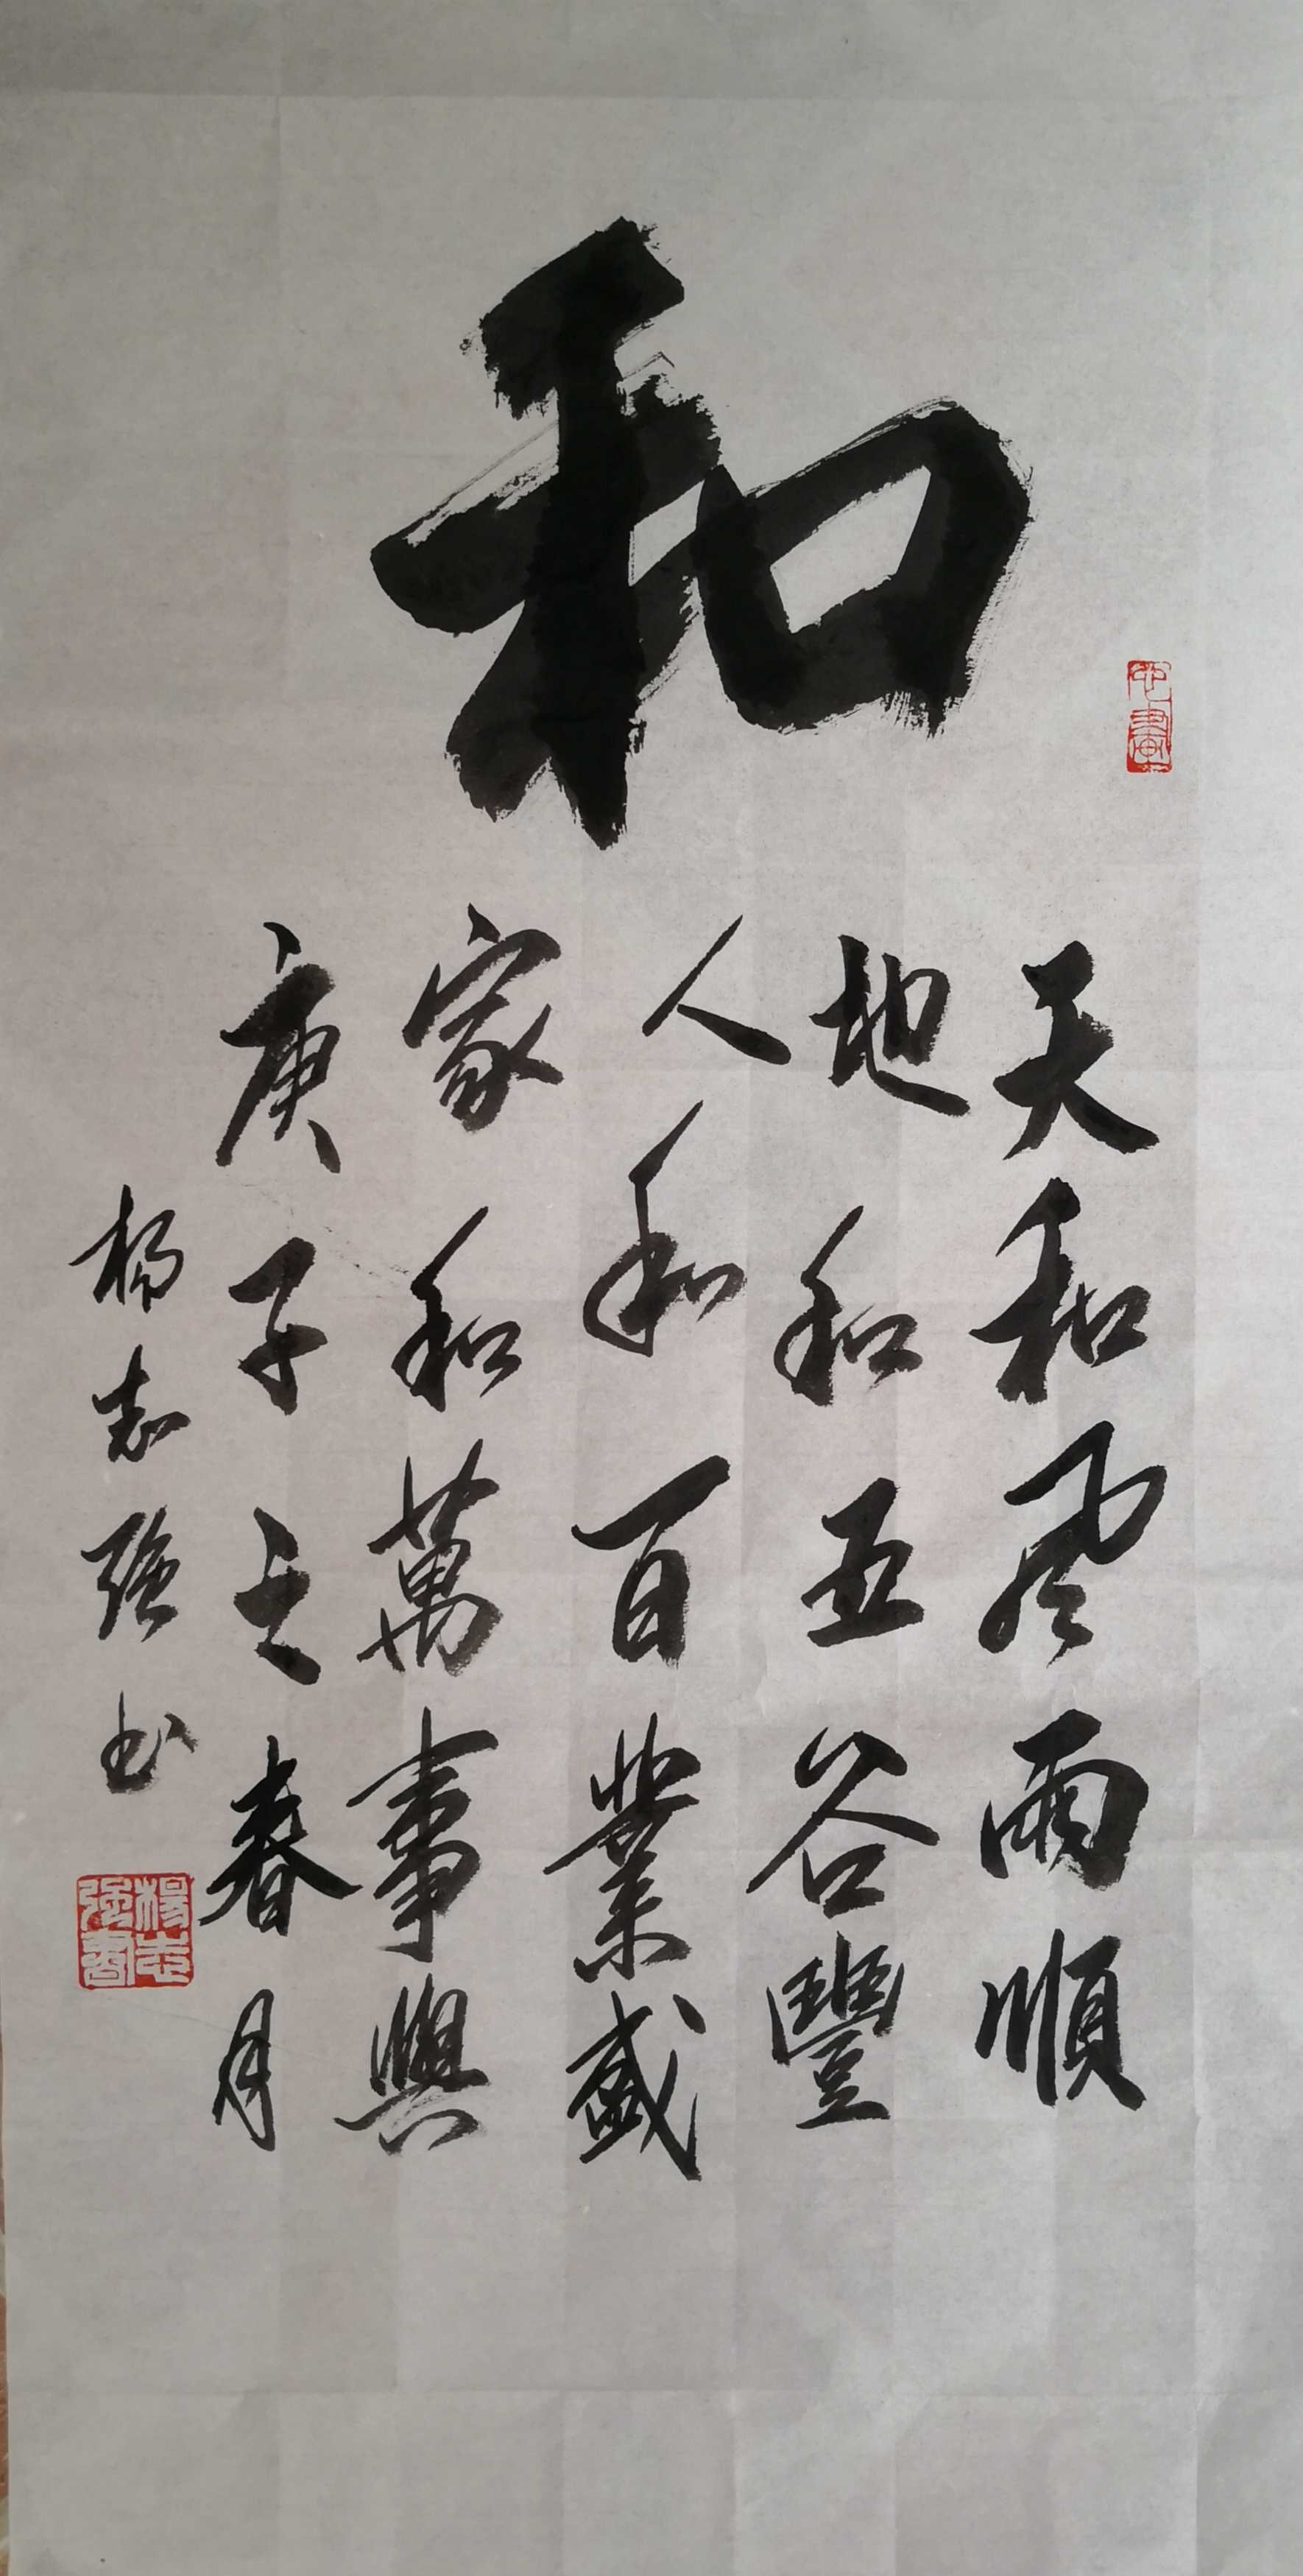 和
天和風雨順
地和五谷豐
人和百業盛
家和萬事興
庚子之春月
楊志強书
楊志強書